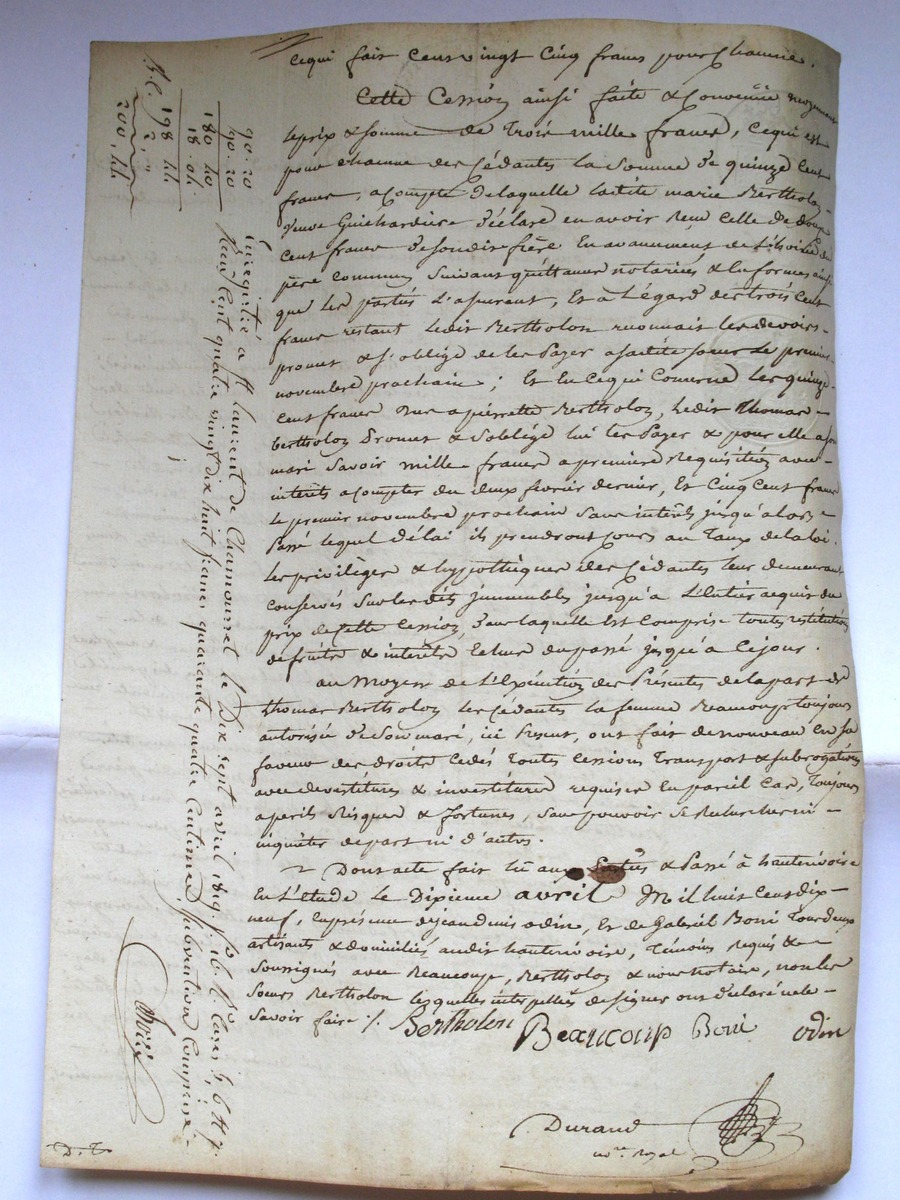 cequi fait Cent vingt Cinq francs pour Chacune.
Cette Cession ainsi faite & Convenue moyennant
le prix & somme de Trois mille francs, Cequi est
pour Chacune des Cédantes la Somme de quinze Cent
francs, acompte delaquelle ladite marie Bertholon
veuve Guichardière déclare en avoir Reçu Celle de douze
Cent francs desondit frère En avancement de l'hoirie du
père commun Suivant quittance notariées & En formes ainsi
que les parties l'assurent, Et a L'égard des trois Cent
francs restant Ledit Bertholon reconnait les devoirs
promet & s'oblige de les Payer asadite soeur Le premier
novembre prochain ; Et En Cequi Concerne les quinze
Cent francs dus apierrette Bertholon, Ledit Thomas
bertholon Promet & soblige lui les Payer & pour elle ason
mari Savoir mille francs apremière Requisition avec
intérêts acompter du deux fevrier dernier, Et Cinq Cent francs
Le premier novembre prochain Sans intérêts jusqu'alors
Passé lequel délai ils prendront Cours au Taux delaloi.
Les privilèges & hypothèques des Cédantes leur demeurant
Conservés Sur lesdits immeubles jusqu'a L'Entier acquit du
prix de Cette Cession, Dans laquelle Est Comprise toutes restitutions
defruits & intérêts Echus du passé jusqu'à Cejour.
au Moyen de L'Exécution des Présentes delapart de
thomas Bertholon les Cédantes la femme Beaucoup toujours
autorisée de Son mari, ici Présent, ont fait denouveau En sa
faveur des droits Cédés Toutes Cessions Transport & subrogations
avec devestitures & investitures requises En pareil Cas, Toujours
aperils Risques & fortunes, Sans pouvoir Se Rechercher ni
inquiéter depart ni d'autre.
Dont acte fait lu aux Parties & Passé à hauterivoire
En L'étude Le Dixieme avril Mil huit Cent dix
neuf, Enprésence dejean denis odin, Et de Gabriel Boni Tous deux
artisants & domiciliés audit hauterivoire, Témoins Requis &
Soussignés avec Beaucoup, Bertholon & nous notaire, non les
Soeurs Bertholon lesquelles interpellées designer ont déclaré nele
Savoir faire ./. Bertholon Beaucoup Boni odin
Durand
no.re Royal
Enregistré a St laurent de Chamousset le Dix sept avril 1819 fo 16 Ro Cases 5, 6 & 7.
Reçu Cent quatre vingt dix huit francs quarante quatre Centimes, Subvention Comprise.
90. 20
90. 20
180 40
18. 04
198 44
2. "
200, 44
D. T.